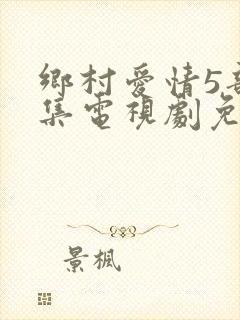 鄉村愛情5
集電視劇免
景楓